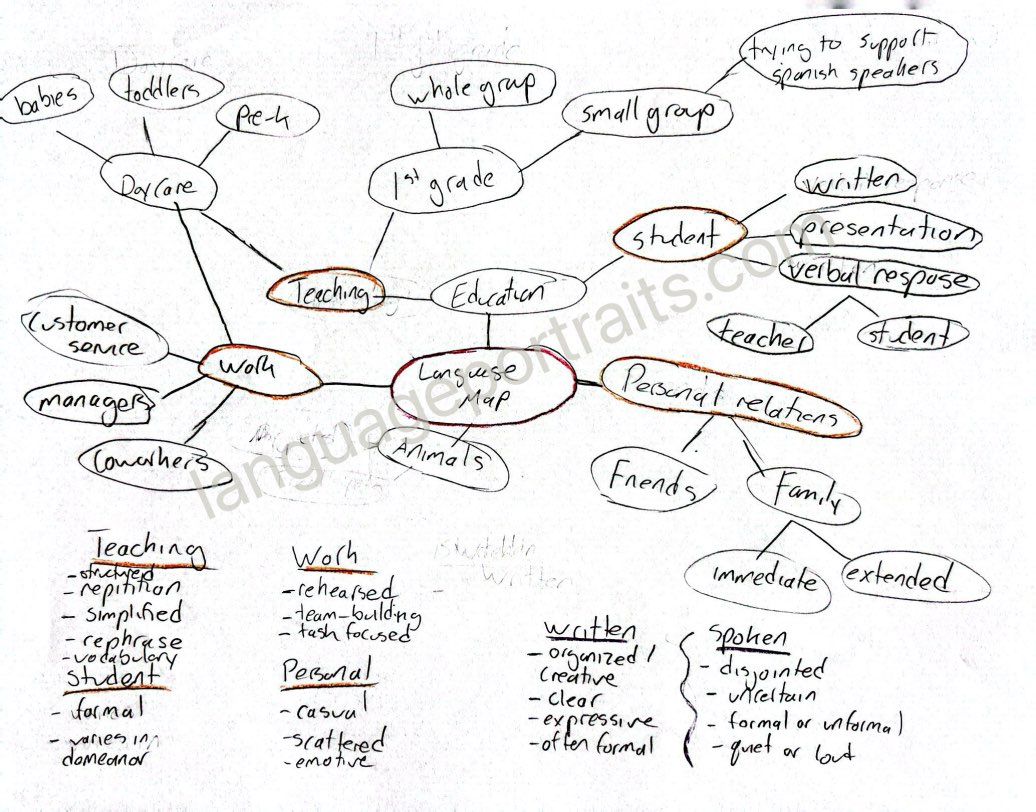 trying to support
spanish speakers
babies
toddlers
Pre-k
whole group
small group
DayCare
1st grade
written
student
presentation
verbal respose
teacher
student
Teaching
Education
Customer
service
work
Language
Map
Personal relations
managers
Coworkers
Animals
Friends
Family
immediate
extended
languageportraits.com
Teaching
- structured
- repitition
- simplified
- rephrase
- vocabulary
Student
- formal
- varies in
domeanor
Work
- rehearsed
- team-building
- task focused
Personal
- casual
- scattered
- emotive
written
- organized/
creative
- clear
- expressive
- often formal
Spoken
- disjointed
- uncertain
- formal or unformal
- quiet or
written